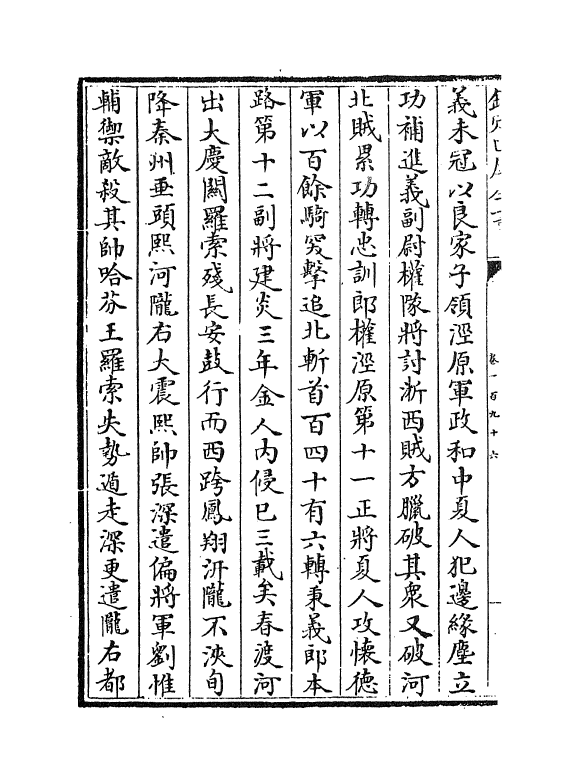 義未冠以良家子領涇原軍政和中夏人犯邊緣塵立
功補進義副尉權隊將討淅西賊方臘破其衆又破河
北賊累功轉忠訓郎權涇原第十一正將夏人攻懐德
軍以百餘騎突擊追北斬首百四十有六轉秉義郎本
路第十二副將建炎三年金人内侵已三載矣春渡河
出大慶關羅索殘長安鼓行而西跨鳳翔汧隴不浹旬
降秦州垂頭熙河隴右大震熙帥張深遣偏將軍劉惟
輔禦敵殺其帥哈芬王羅索失勢遁走深更遣隴右都
卷一百九十六